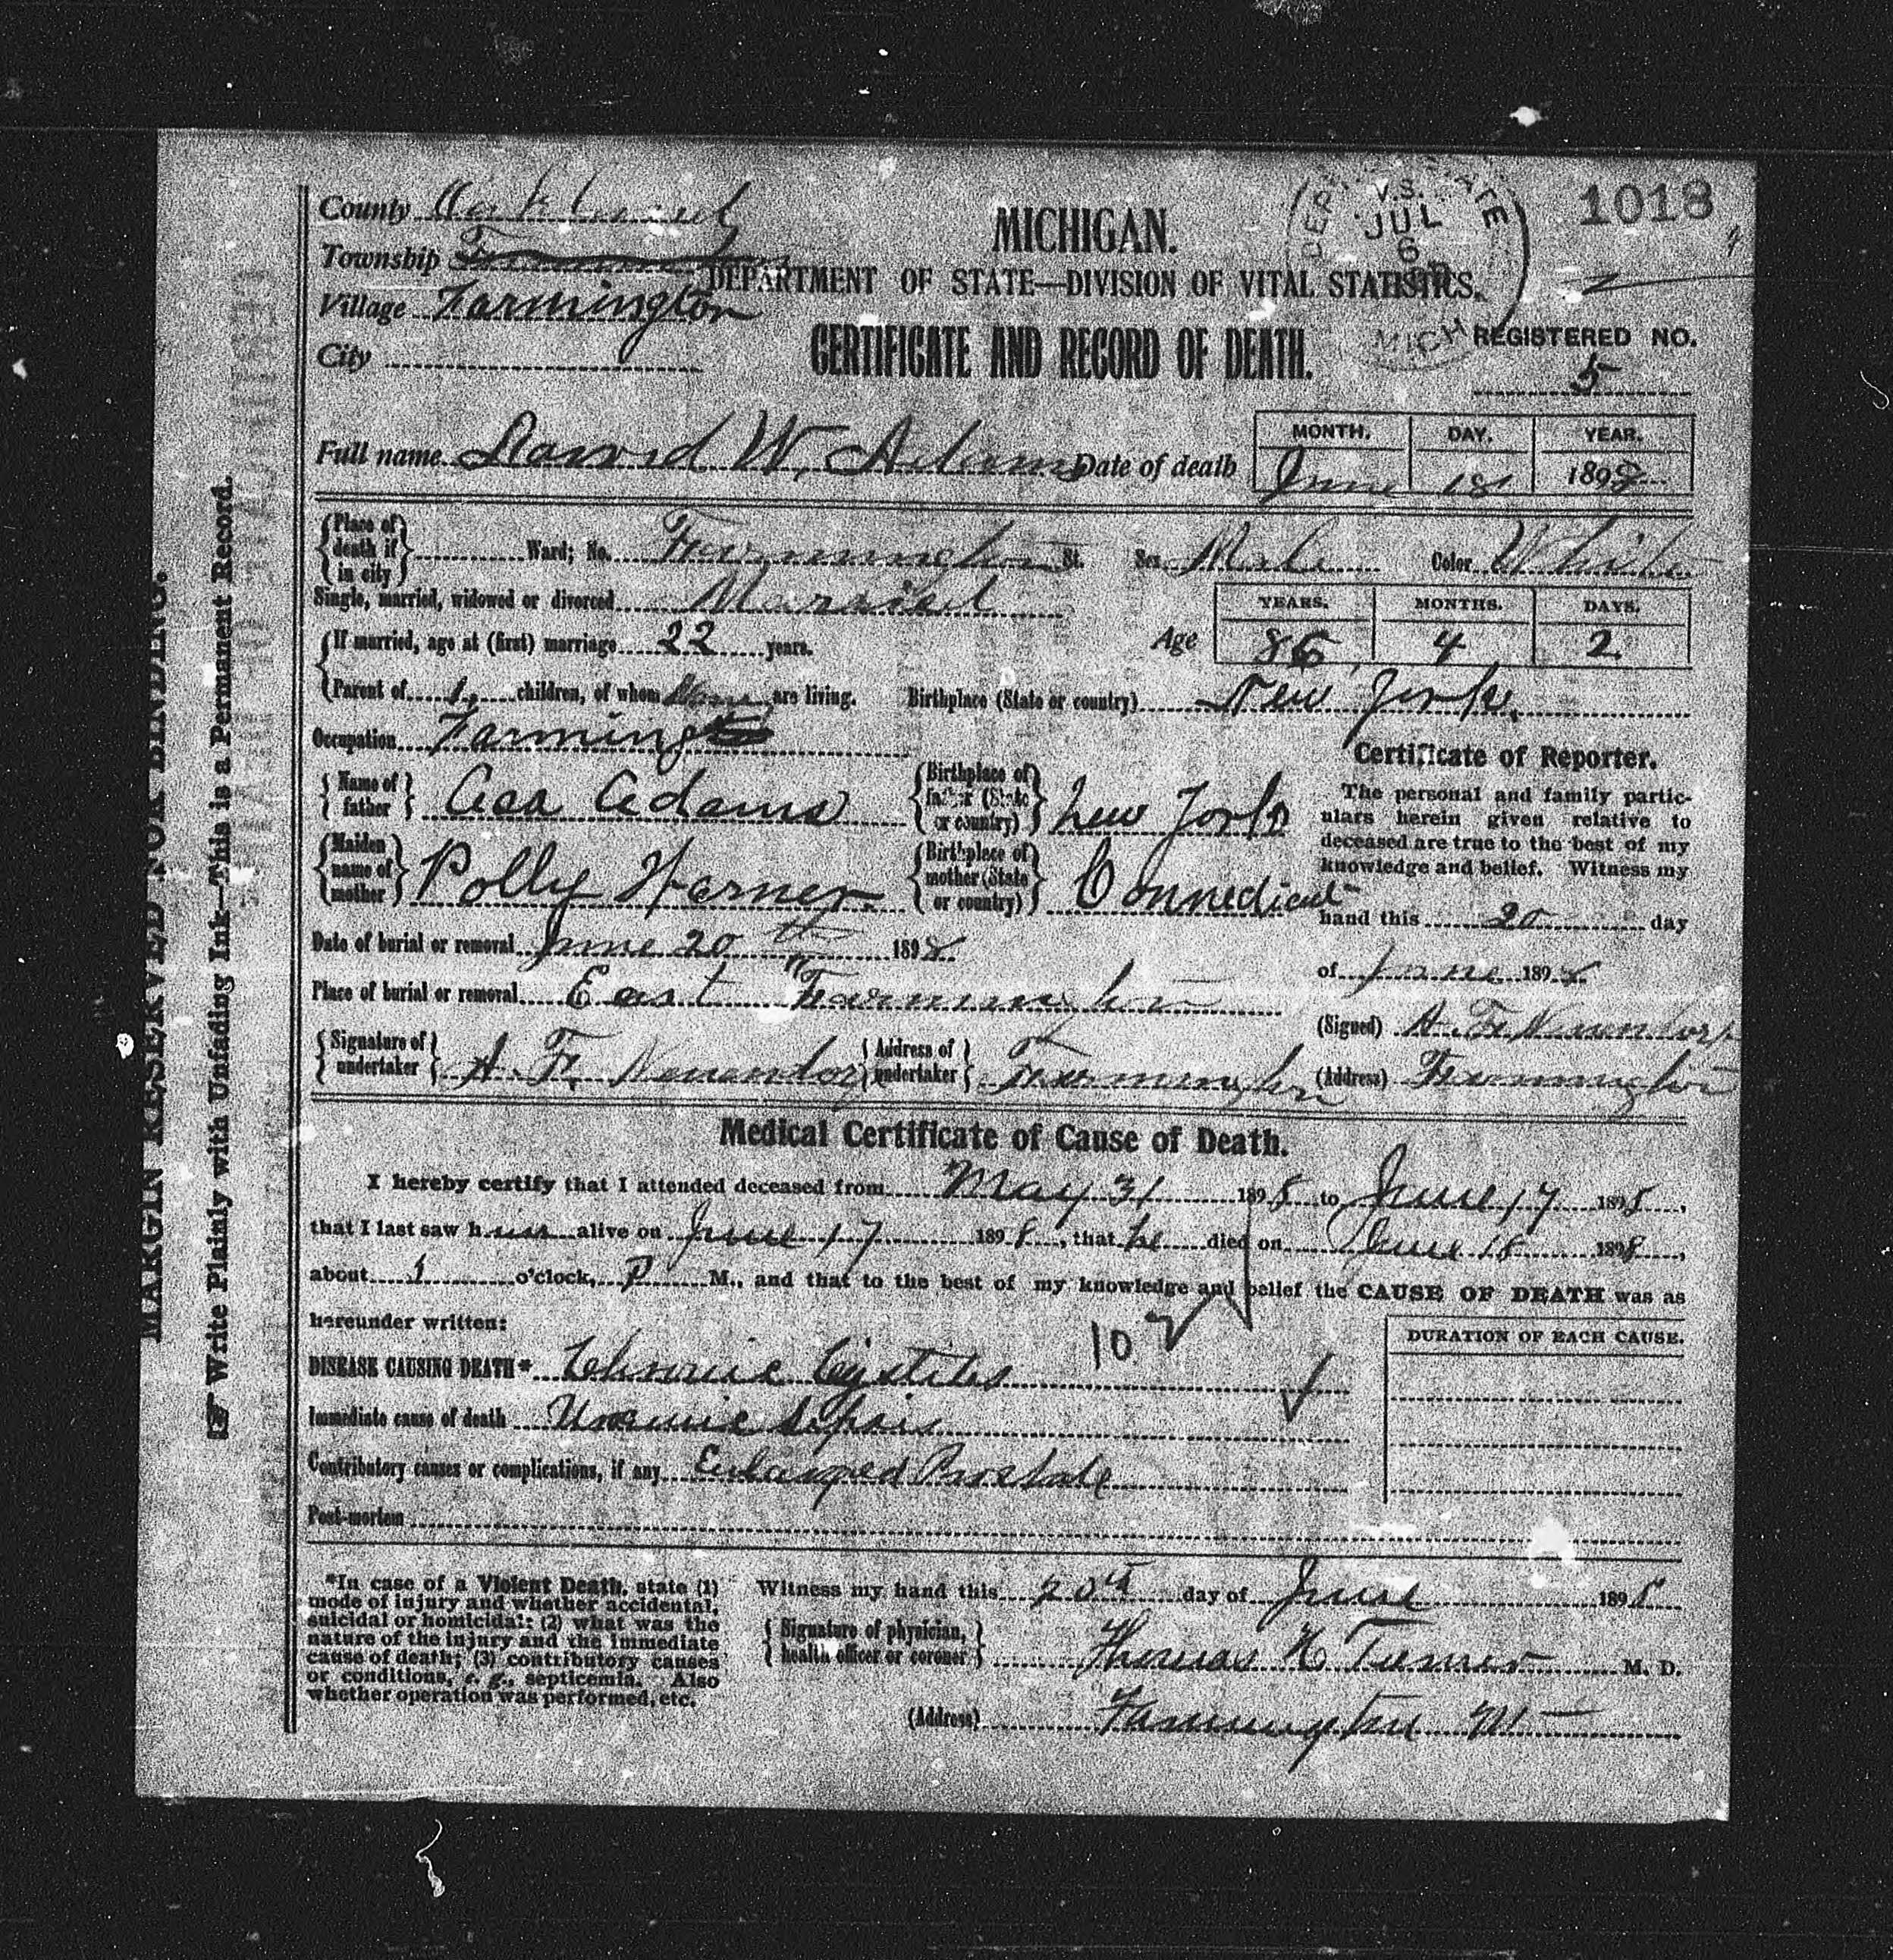 1018
DEPT STATE
V.S.
JUL
6
MICH
County Oakland
Township
Village Farmington
City
MICHIGAN.
DEPARTMENT OF STATE—DIVISION OF VITAL STATISTICS.
CERTIFICATE AND RECORD OF DEATH.
REGISTERED NO.
5
Full name David W. Adams Date of death
MONTH. DAY. YEAR.
June 18 1898
{Place of death if in city} Ward; No. Farmington St. Sex Male Color White
Single, married, widowed or divorced Married
If married, age at (first) marriage 22 years.
Age YEARS. MONTHS. DAYS.
86 4 2
Parent of 1 children, of whom None are living. Birthplace (State or country) New York.
Occupation Farming
{Name of father} Asa Adams {Birthplace of father (State or country)} New York
{Maiden name of mother} Polly Warner {Birthplace of mother (State or country)} Connedicut
Date of burial or removal June 20th 1898
Place of burial or removal East Farmington
{Signature of undertaker} A. F. {Address of undertaker} Farmington
Certificate of Reporter.
The personal and family partic-
ulars herein given relative to
deceased are true to the best of my
knowledge and belief. Witness my
hand this 20 day
of June 1898
(Signed) A. F.
(Address) Farmington
Medical Certificate of Cause of Death.
I hereby certify that I attended deceased from May 31 1898 to June 17 1898,
that I last saw him alive on June 17 1898, that he died on June 18 1898,
about 1 o'clock, P M., and that to the best of my knowledge and belief the CAUSE OF DEATH was as
hereunder written:
DURATION OF EACH CAUSE.
DISEASE CAUSING DEATH* Chronic Cystitis
Immediate cause of death Uraemic Sepsis
Contributory causes or complications, if any Enlarged Prostate
Post-mortem
*In case of a Violent Death, state (1)
mode of injury and whether accidental,
suicidal or homicidal; (2) what was the
nature of the injury and the immediate
cause of death; (3) contributory causes
or conditions, e. g., septicemia. Also
whether operation was performed, etc.
Witness my hand this 20th day of June 1898
{Signature of physician, health officer or coroner} Thomas H Turner M. D.
(Address) Farmington M
MARGIN RESERVED FOR BINDING.
Write Plainly with Unfading Ink—This is a Permanent Record.